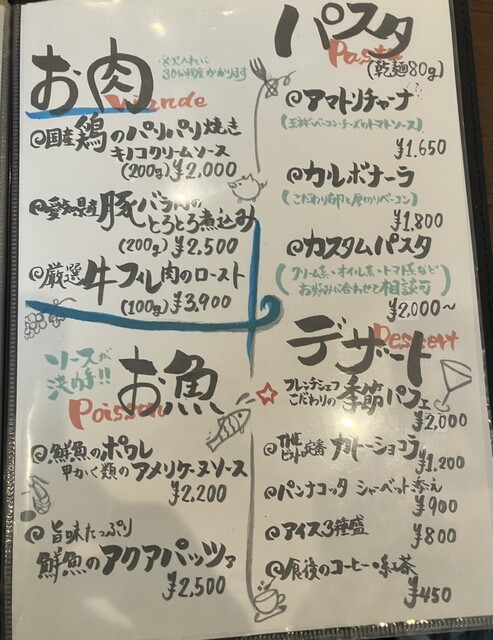 お肉
Viande
火入れに
30分程度かかります
国産 鶏のパリパリ焼き
キノコクリームソース
(200g) ¥2,000
愛知県産 豚バラ肉の
とろとろ煮込み
(200g) ¥2,500
厳選 牛フィレ肉のロースト
(100g) ¥3,900
ソースが
決め手!!
お魚
Poisson
鮮魚のポワレ
甲かく類のアメリケーヌソース
¥2,200
旨味たっぷり
鮮魚のアクアパッツァ
¥2,500
パスタ
Pasta
(乾麺80g)
アマトリチャーナ
(玉ネギ・ベーコン・チーズのトマトソース)
¥1,650
カルボナーラ
(こだわり卵と厚切りベーコン)
¥1,800
カスタムパスタ
(クリーム系・オイル系・トマト系など
お好みに合わせて相談可)
¥2,000〜
デザート
Dessert
フレンチシェフ
こだわりの季節パフェ
¥2,000
THE
定番 ガトーショコラ
¥1,200
パンナコッタ シャーベット添え
¥900
アイス3種盛
¥800
食後のコーヒー・紅茶
¥450